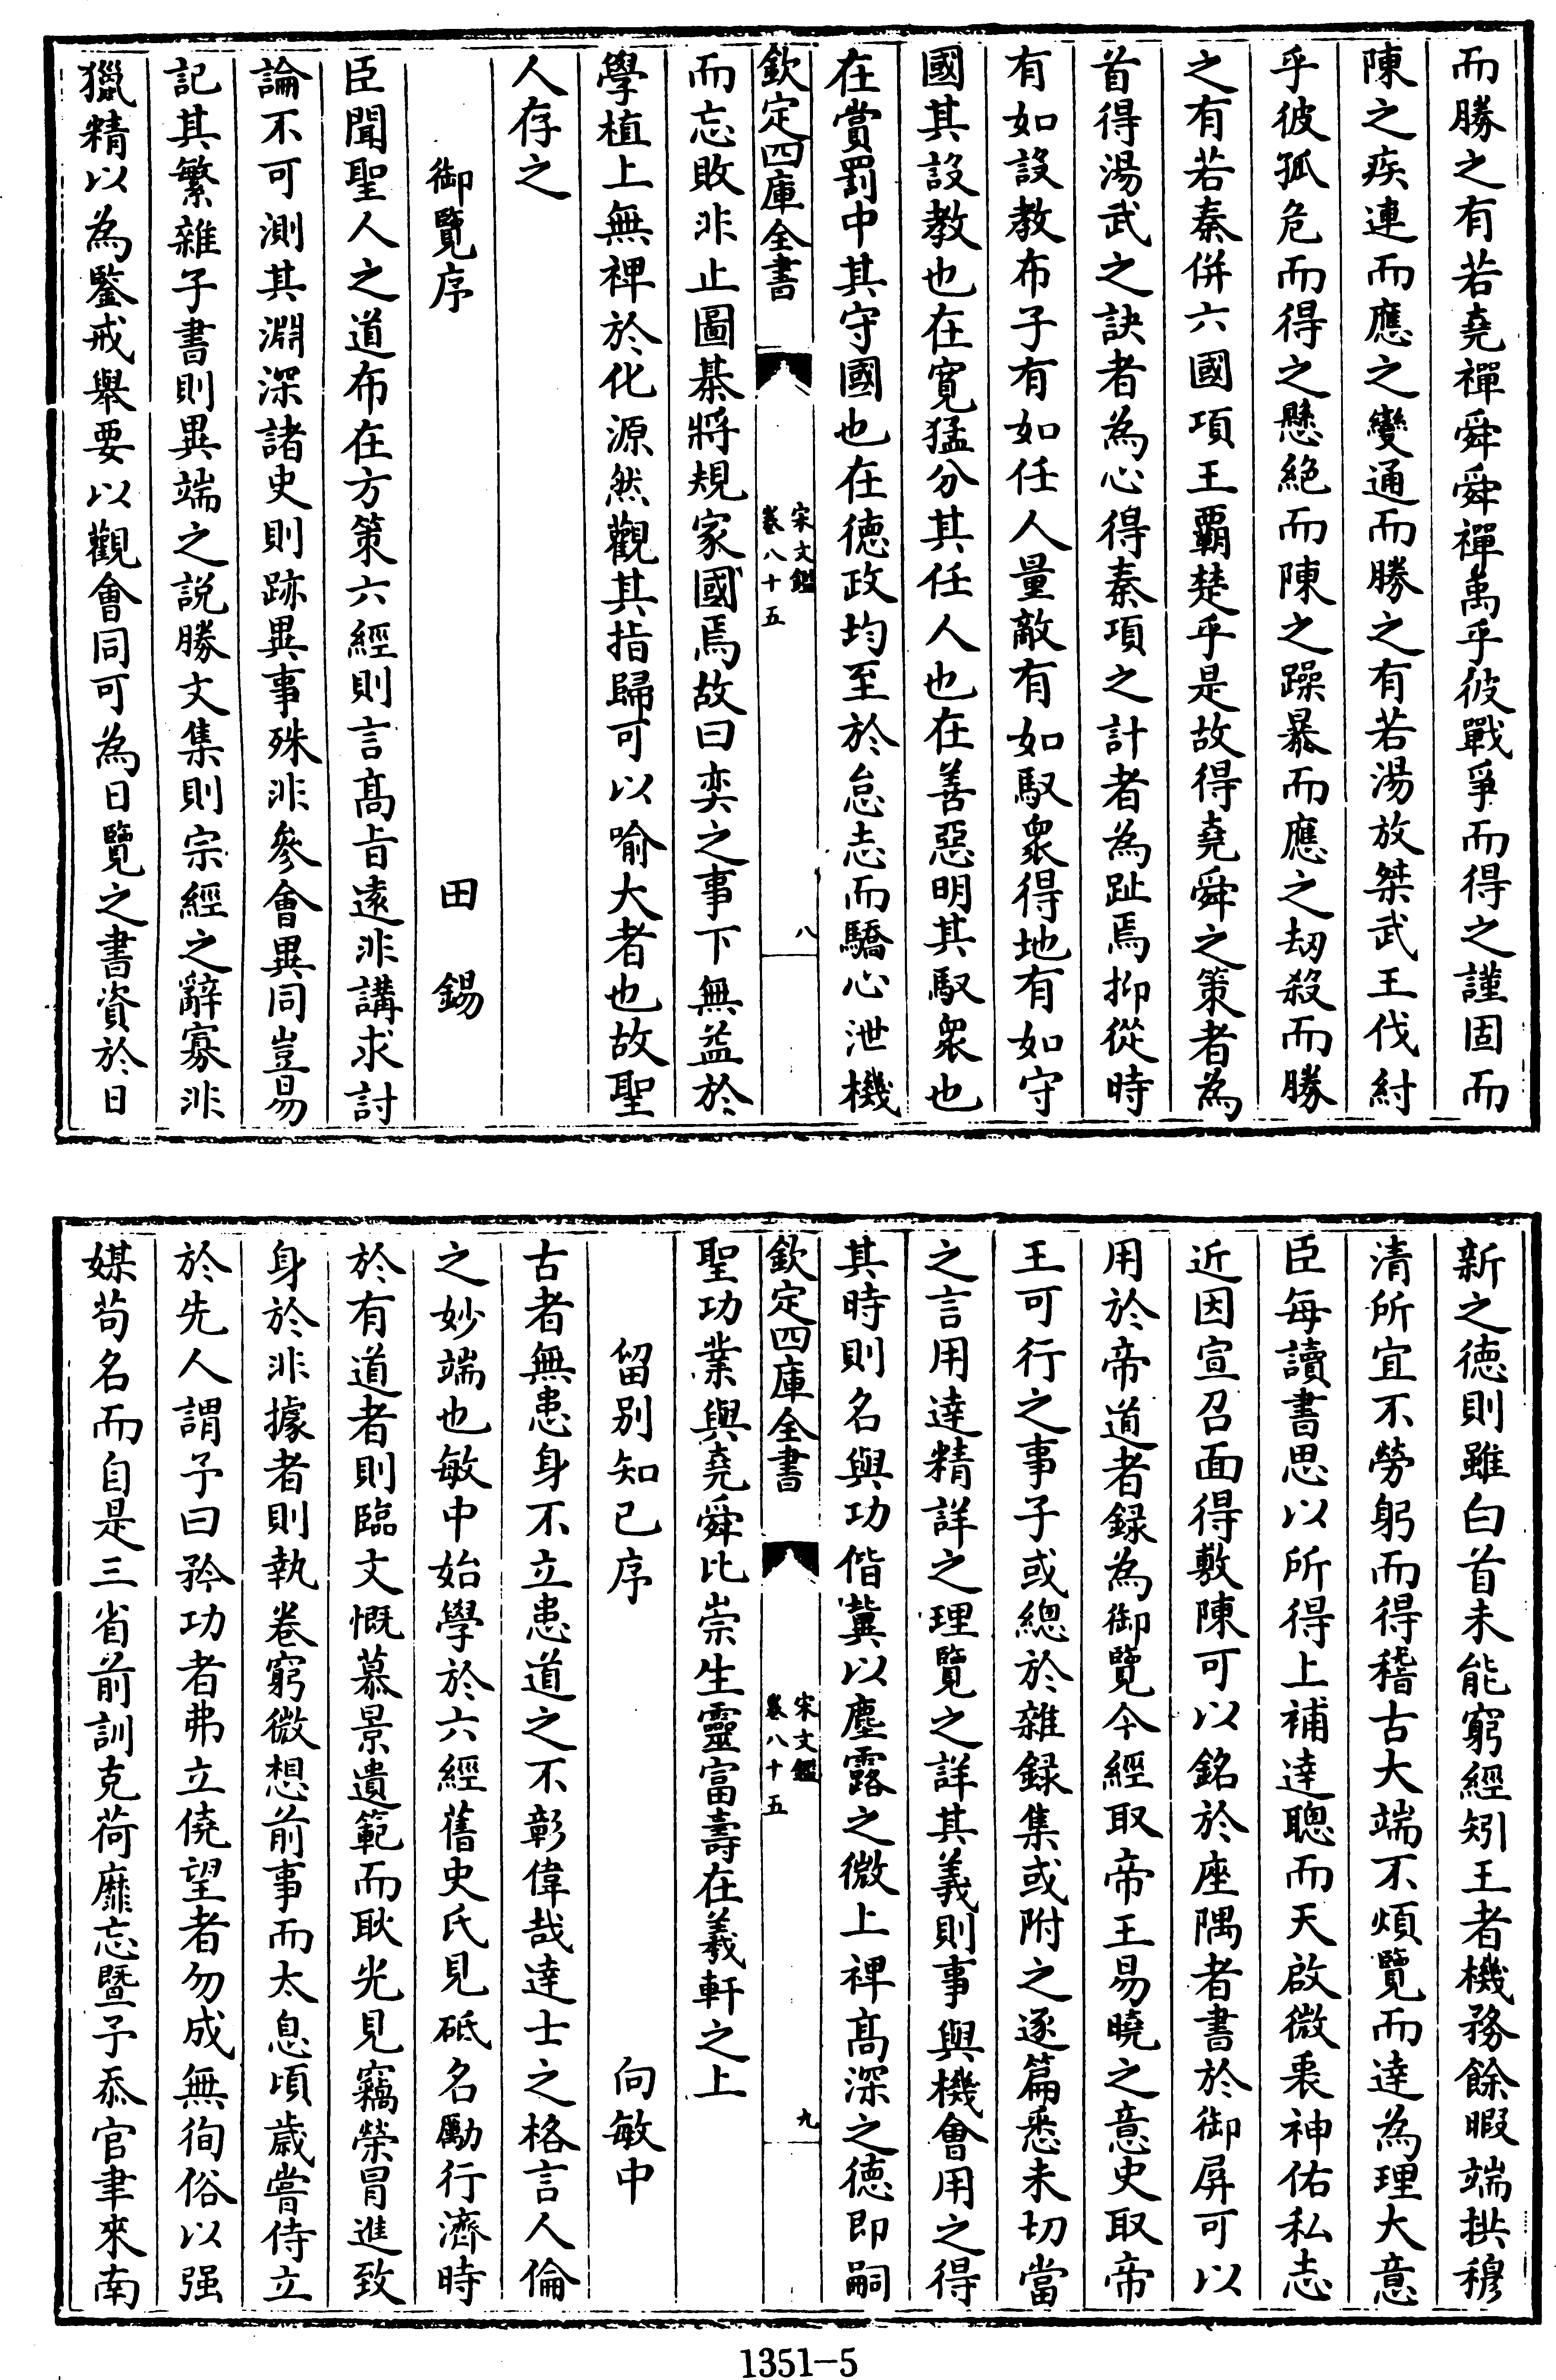 而勝之有若堯禪舜舜禪禹乎彼戰爭而得之謹固而
陳之疾連而應之變通而勝之有若湯放桀武王伐紂
乎彼孤危而得之懸絶而陳之躁暴而應之刼殺而勝
之有若秦併六國項王覇楚乎是故得堯舜之策者為
首得湯武之訣者為心得秦項之計者為趾焉抑從時
有如設教布子有如任人量敵有如馭衆得地有如守
國其設教也在寛猛分其任人也在善惡明其馭衆也
在賞罰中其守國也在徳政均至於怠志而驕心泄機
欽定四庫全書
宋文鑑
卷八十五
八
而忘敗非止圖棊將規家國焉故曰奕之事下無益於
學植上無裨於化源然觀其指歸可以喻大者也故聖
人存之
御覽序 田錫
臣聞聖人之道布在方策六經則言髙旨逺非講求討
論不可測其淵深諸史則跡異事殊非參會異同豈易
記其繁雜子書則異端之説勝文集則宗經之辭寡非
獵精以為鑒戒舉要以觀會同可為日覽之書資於日
新之徳則雖白首未能窮經矧王者機務餘暇端拱穆
清所宜不勞躬而得稽古大端不煩覽而達為理大意
臣毎讀書思以所得上補達聰而天啟微衷神佑私志
近因宣召面得敷陳可以銘於座隅者書於御屏可以
用於帝道者録為御覽今經取帝王易曉之意史取帝
王可行之事子或總於雜録集或附之逐篇悉未切當
之言用達精詳之理覽之詳其義則事與機會用之得
其時則名與功偕冀以塵露之微上裨髙深之徳即嗣
欽定四庫全書
宋文鑑
卷八十五
九
聖功業與堯舜比崇生靈富壽在羲軒之上
留别知己序 向敏中
古者無患身不立患道之不彰偉哉達士之格言人倫
之妙端也敏中始學於六經舊史氏見砥名勵行濟時
於有道者則臨文慨慕景遺範而耿光見竊榮冒進致
身於非據者則執卷窮微想前事而太息頃嵗嘗侍立
於先人謂予曰矜功者弗立僥望者勿成無徇俗以强
媒茍名而自是三省前訓克荷靡忘暨予忝官聿來南
1351-5